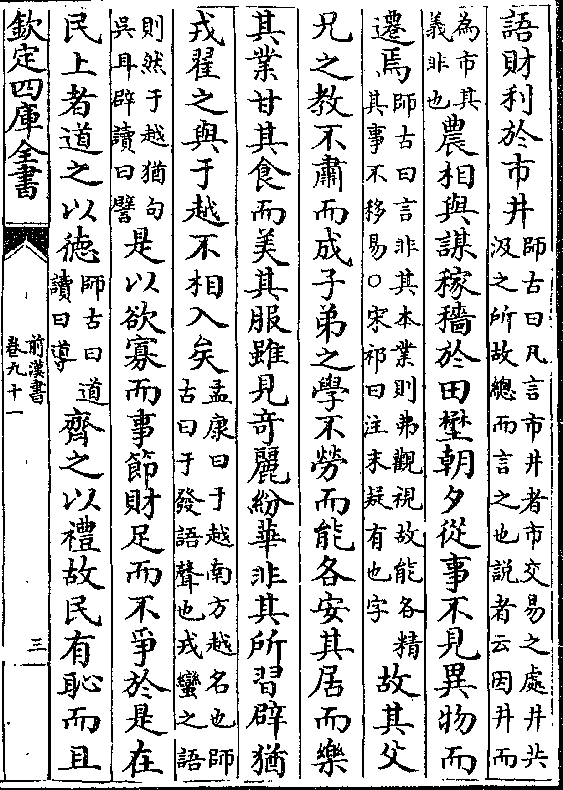 語財利於市井師古曰凡言市井者市交易之處井共汲之所故總而言之也說者云因井而
為市其義非也農相與謀稼穡於田壄朝夕從事不見異物而
遷焉師古曰言非其本業則弗觀視故能各精其事不移易○宋祁曰注末疑有也字故其父
兄之教不肅而成子弟之學不勞而能各安其居而樂
其業甘其食而美其服雖見奇麗紛華非其所習辟猶
戎翟之與于越不相入矣孟康曰于越南方越名也師古曰于發語聲也戎蠻之語
則然于越猶句吳耳辟讀曰譬是以欲寡而事節財足而不爭於是在
民上者道之以德師古曰道讀曰導齊之以禮故民有恥而且
欽定四庫全書
前漢書
卷九十一
三